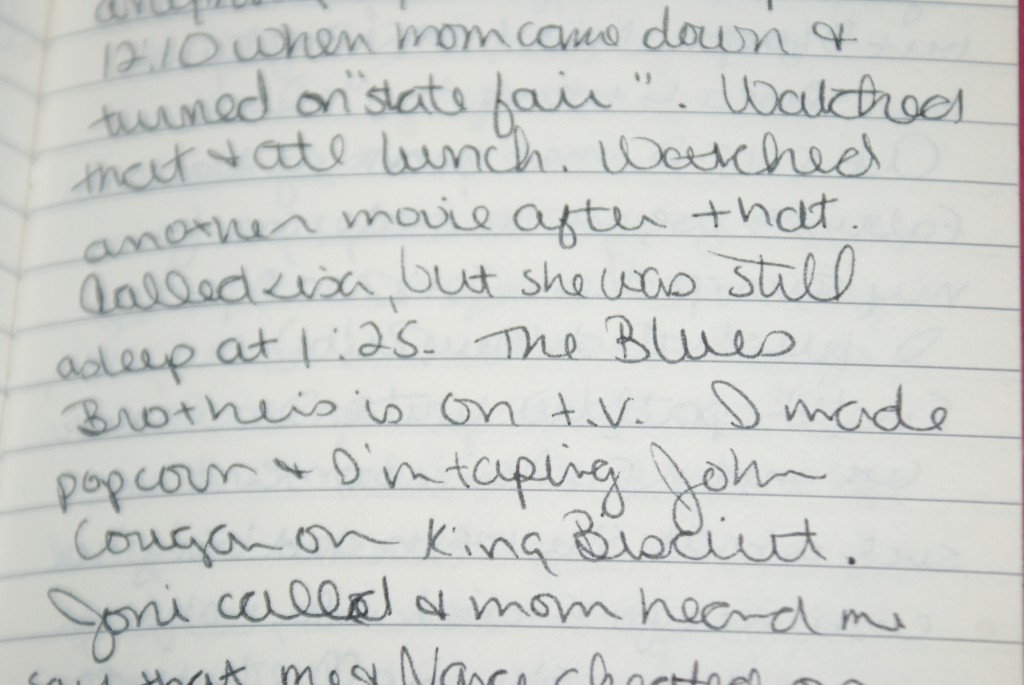 12:10 when mom came down &
turned on "state fair". Watched
that & ate lunch. Watched
another movie after that.
Called Lisa, but she was still
asleep at 1:25. The Blues
Brothers is on t.v. I made
popcorn & I'm taping John
Cougar on King Biscuit.
Joni called & mom heard me
say that me & Nancy cheated on